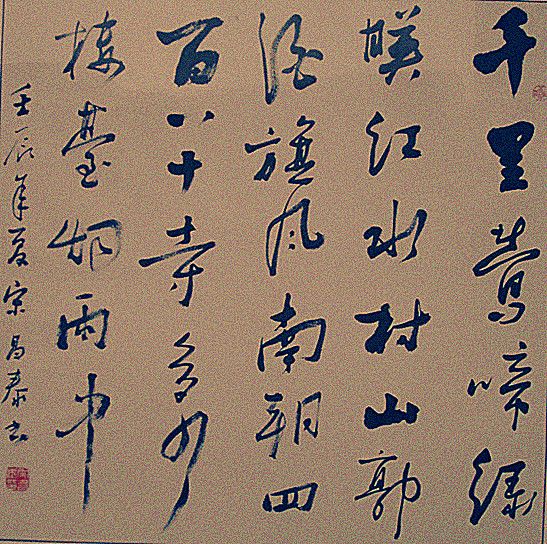 千里莺啼绿
暎红水村山郭
酒旗风南朝四
百八十寺多少
楼臺烟雨中
壬辰年夏宗昌泰书